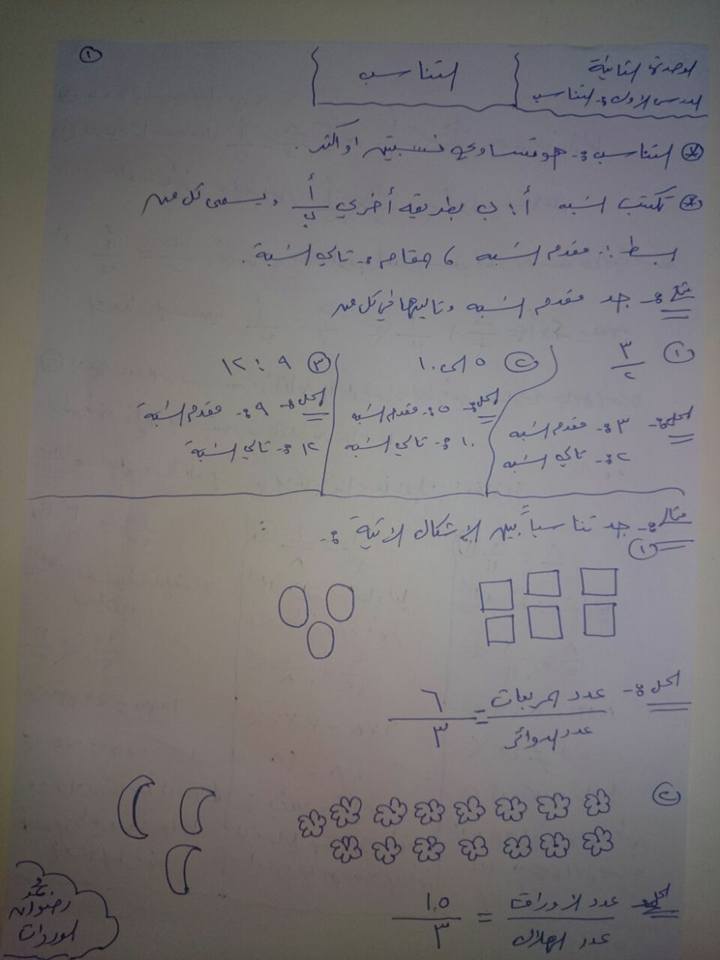 ١
الوحدة الثانية
التناسب
الدرس الأول :- التناسب
* التناسب :- هو تساوي نسبتين او اكثر.
* تكتب النسبة أ : ب بطريقة أخرى أ/ب ، ويسمى كل من
البسط :- مقدم النسبة ، مقام :- تالي النسبة.
مثال :- جد مقدم النسبة وتاليها في كل من
١ ٣/٢
٢ ٥ الى ١٠
٣ ٩ : ١٢
الحل :- ٣ :- مقدم النسبة
٢ :- تالي النسبة
الحل :- ٥ :- مقدم النسبة
١٠ :- تالي النسبة
الحل :- ٩ :- مقدم النسبة
١٢ :- تالي النسبة
مثال :- جد تناسباً بين الاشكال الاتية :-
١
الحل :- عدد المربعات / عدد الدوائر = ٦/٣
٢
الحل عدد الاوراق / عدد الهلال = ١٥/٣
رضوان
الوردات